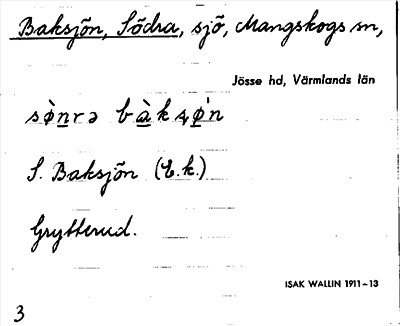 Baksjön, Södra, sjö, Mangskogs sn,
Jösse hd, Värmlands län
sǿ̀nrə bàkʂø̀'n
S. Baksjön (E.k.)
Grytterud.
ISAK WALLIN 1911-13
3